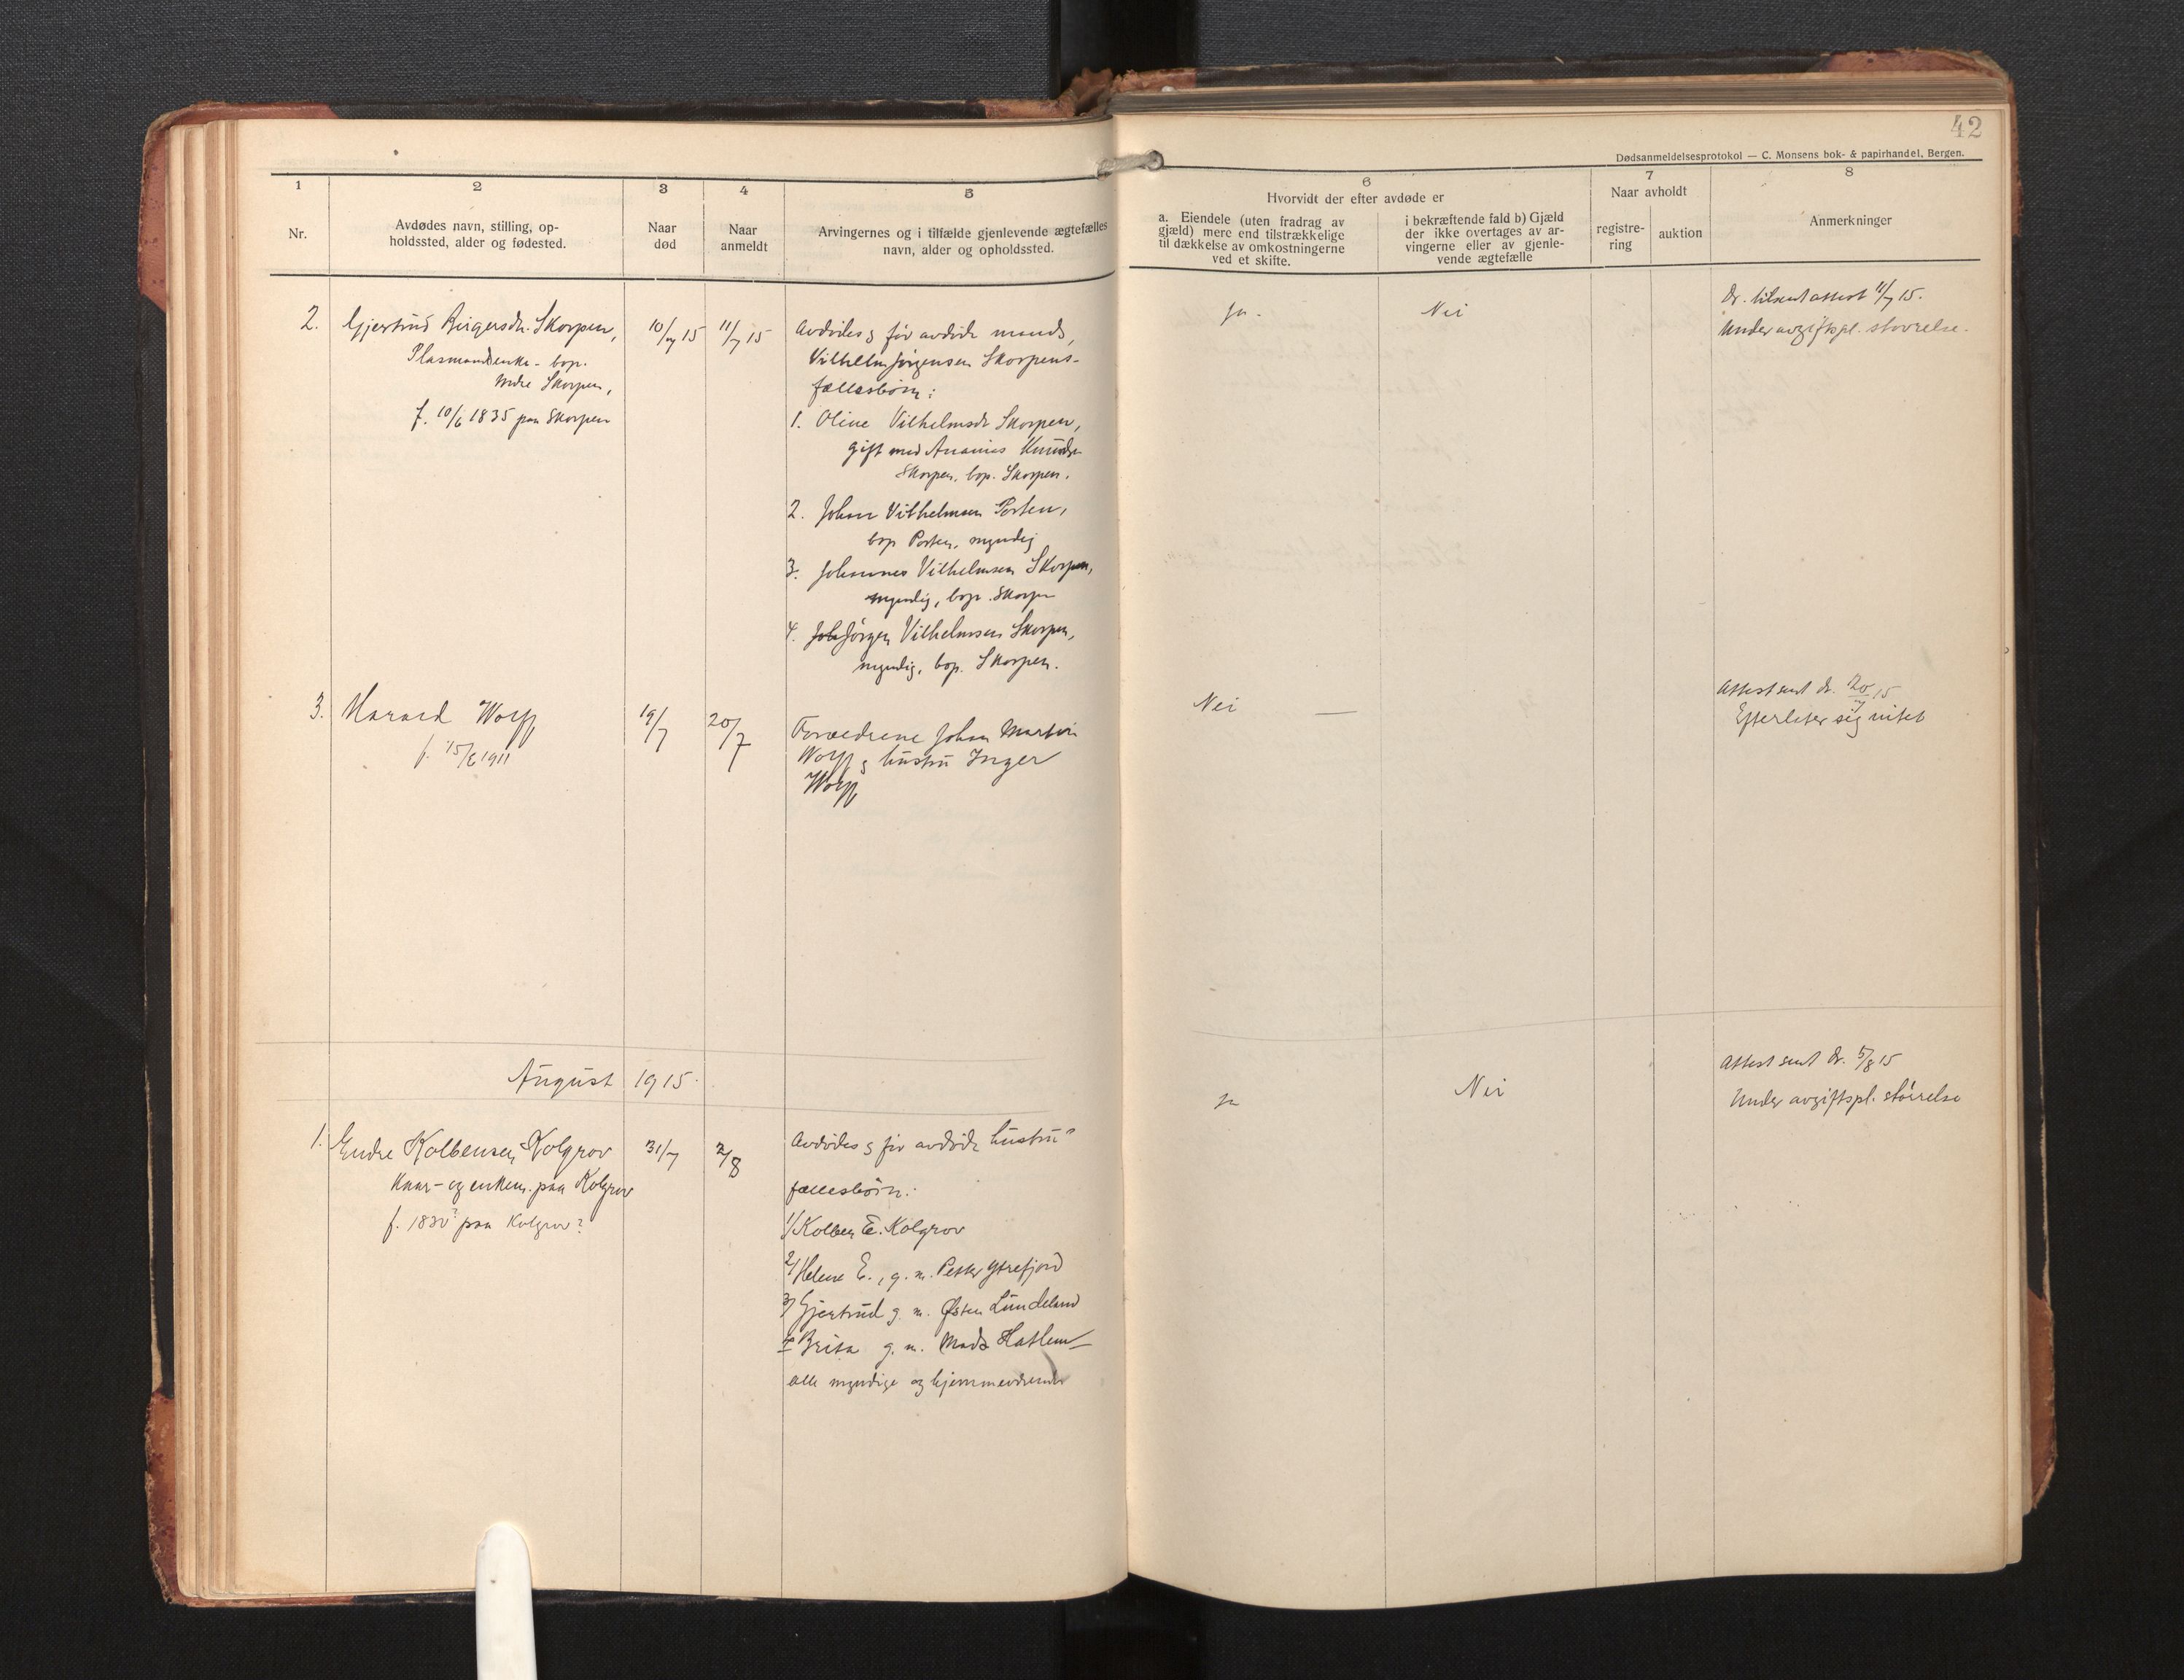 42
Dødsanmeldelsesprotokol — C. Monsens bok- & papirhandel, Bergen.
1
Nr.
2
Avdødes navn, stilling, op-
holdssted, alder og fødested.
3
Naar
død
4
Naar
anmeldt
5
Arvingernes og i tilfælde gjenlevende ægtefælles
navn, alder og opholdssted.
6
Hvorvidt der efter avdøde er
a. Eiendele (uten fradrag av
gjæld) mere end tilstrækkelige
til dækkelse av omkostningerne
ved et skifte.
i bekræftende fald b) Gjæld
der ikke overtages av ar-
vingerne eller av gjenle-
vende ægtefælle
7
Naar avholdt
registre-
ring
auktion
8
Anmerkninger
2.
Gjertrud Birgersdr. Skorpen,
Plasmandsenke - bop.
Indre Skorpen,
f. 10/6 1835 paa Skorpen
10/7 15
11/7 15
Avdødes og før avdøde mands,
Vilhelm Jørgensen Skorpens-
fællesbörn:
1. Oline Vilhelmsdr Skorpen,
gift med Ananias Knudsen
Skorpen, bop. Skorpen.
2. Johan Vilhelmsen Porten,
bop Porten, myndig
3. Johannes Vilhelmsen Skorpen,
myndig, bop. Skorpen
4. Joh Jörgen Vilhelmsen Skorpen,
myndig, bop. Skorpen.
Ja.
Nei
Dr. tilsendt attest 11/7 15.
Under avgiftspl. størrelse.
3.
Harald Wolff
f. 15/6 1911
19/7
20/7
Forældrene Johan Martin
Wolff og hustru Inger
Wolff
Nei —
Attest sent dr. 20/7 15
Efterlater sig intet
August 1915.
1.
Endre Kolbensen Kolgrov
Kaar- og enkem. paa Kolgrov
f. 1830? paa Kolgrov?
31/7
2/8
Avdødes og før avdøde hustru's
fællesbörn:
1/ Kolben E. Kolgrov
2/ Helene E., g. m. Petter Ytrefjord
3/ Gjertrud g. m. Østen Lundeland
4 Brita g. m. Mads Hatlem
alle myndige og hjemmeværende
Ja
Nei
Attest sent dr. 5/8 15
Under avgiftspl. störrelse